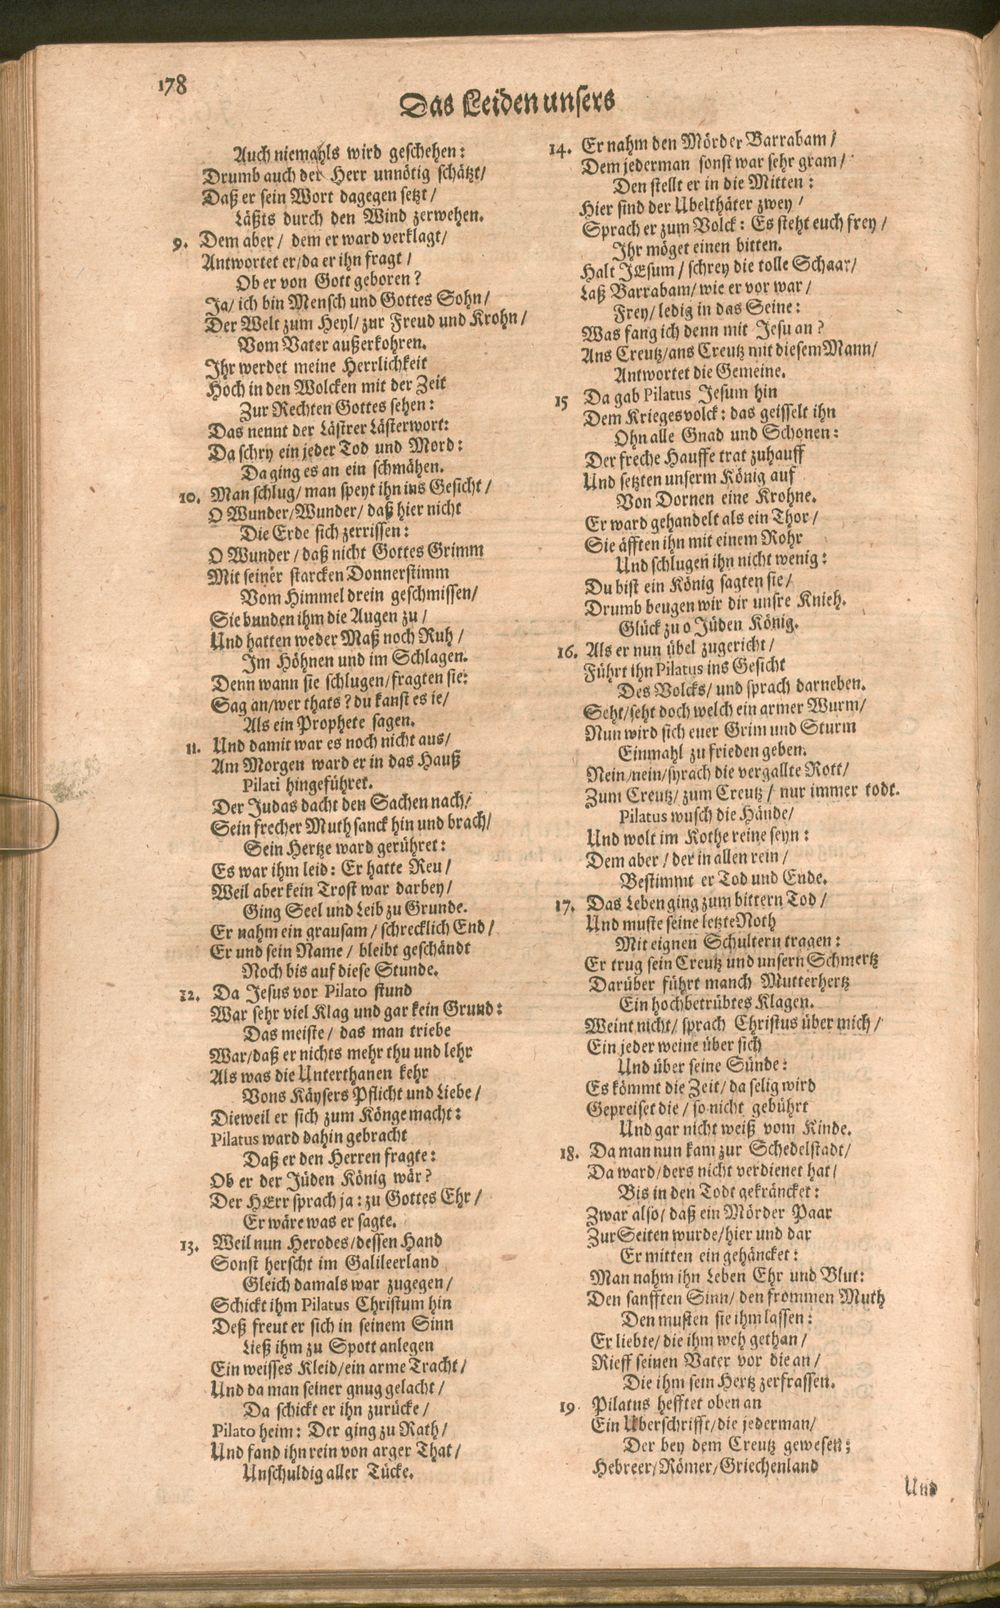 178
Das Leiden unsers
Auch niemahls wird geschehen:
Drumb auch der Herr unnötig schätzt/
Daß er sein Wort dagegen setzt/
Läßts durch den Wind zerwehen.
9. Dem aber/ dem er ward verklagt/
Antwortet er/da er ihn fragt/
Ob er von Gott geboren?
Ja/ ich bin Mensch und Gottes Sohn/
Der Welt zum Heyl/ zur Freud und Krohn/
Vom Vater außerkohren.
Ihr werdet meine Herrlichkeit
Hoch in den Wolcken mit der Zeit
Zur Rechten Gottes sehen:
Das nennt der Lästrer Lästerwort:
Da schry ein jeder Tod und Mord:
Da ging es an ein schmähen.
10. Man schlug/ man speyt ihn ins Gesicht/
O Wunder/Wunder/ daß hier nicht
Die Erde sich zerrissen:
O Wunder/ daß nicht Gottes Grimm
Mit seiner starcken Donnerstimm
Vom Himmel drein geschmissen/
Sie bunden ihm die Augen zu/
Und hatten weder Maß noch Ruh/
Im Höhnen und im Schlagen.
Denn wann sie schlugen/fragten sie:
Sag an/wer thats? du kanst es ie/
Als ein Prophete sagen.
11. Und damit war es noch nicht aus/
Am Morgen ward er in das Hauß
Pilati hingeführet.
Der Judas dacht den Sachen nach/
Sein frecher Muth sanck hin und brach/
Sein Hertze ward gerühret:
Es war ihm leid: Er hatte Reu/
Weil aber kein Trost war darbey/
Ging Seel und Leib zu Grunde.
Er nahm ein grausam/ schrecklich End/
Er und sein Name/ bleibt geschändt
Noch bis auf diese Stunde.
12. Da Jesus vor Pilato stund
War sehr viel Klag und gar kein Grund:
Das meiste/ das man triebe
War/daß er nichts mehr thu und lehr
Als was die Unterthanen kehr
Vons Käysers Pflicht und Liebe/
Dieweil er sich zum Könge macht:
Pilatus ward dahin gebracht
Daß er den Herren fragte:
Ob er der Jüden König wär?
Der HErr sprach ja: zu Gottes Ehr/
Er wäre was er sagte.
13. Weil nun Herodes/dessen Hand
Sonst herscht im Galileerland
Gleich damals war zugegen/
Schickt ihm Pilatus Christum hin
Deß freut er sich in seinem Sinn
Ließ ihm zu Spott anlegen
Ein weisses Kleid/ein arme Tracht/
Und da man seiner gnug gelacht/
Da schickt er ihn zurücke/
Pilato heim: Der ging zu Rath/
Und fand ihn rein von arger That/
Unschuldig aller Tücke.
14. Er nahm den Mörder Barrabam/
Dem jederman sonst war sehr gram/
Den stellt er in die Mitten:
Hier sind der Ubelthäter zwey/
Sprach er zum Volck: Es steht euch frey/
Ihr möget einen bitten.
Halt JEsum/ schrey die tolle Schaar/
Laß Barrabam/ wie er vor war/
Frey/ ledig in das Seine:
Was fang ich denn mit Jesu an?
Ans Creutz/ans Creutz mit diesem Mann/
Antwortet die Gemeine.
15 Da gab Pilatus Jesum hin
Dem Kriegesvolck: das geisselt ihn
Ohn alle Gnad und Schonen:
Der freche Hauffe trat zuhauff
Und setzten unserm König auf
Von Dornen eine Krohne.
Er ward gehandelt als ein Thor/
Sie äfften ihn mit einem Rohr
Und schlugen ihn nicht wenig:
Du bist ein König sagten sie/
Drumb beugen wir dir unsre Knieh.
Glück zu o Jüden König.
16. Als er nun übel zugericht/
Führt ihn Pilatus ins Gesicht
Des Volcks/ und sprach darneben.
Seht/seht doch welch ein armer Wurm/
Nun wird sich euer Grim und Sturm
Einmahl zu frieden geben.
Nein/nein/sprach die vergallte Rott/
Zum Creutz/ zum Creutz/ nur immer todt.
Pilatus wusch die Hände/
Und wolt im Kothe reine seyn:
Dem aber/ der in allen rein/
Bestimmt er Tod und Ende.
17. Das Leben ging zum bittern Tod/
Und muste seine letzte Noth
Mit eignen Schultern tragen:
Er trug sein Creutz und unsern Schmertz
Darüber führt manch Mutterhertz
Ein hochbetrübtes Klagen.
Weint nicht/ sprach Christus über mich/
Ein jeder weine über sich
Und über seine Sünde:
Es kömmt die Zeit/ da selig wird
Gepreiset die/ so nicht gebührt
Und gar nicht weiß vom Kinde.
18. Da man nun kam zur Schedelstadt/
Da ward/ders nicht verdienet hat/
Bis in den Todt gekräncket:
Zwar also/ daß ein Mörder Paar
Zur Seiten wurde/hier und dar
Er mitten ein gehäncket:
Man nahm ihn Leben Ehr und Blut:
Den sanfften Sinn/ den frommen Muth
Den musten sie ihm lassen:
Er liebte/ die ihm weh gethan/
Rieff seinen Vater vor die an/
Die ihm sein Hertz zerfrassen.
19 Pilatus hefftet oben an
Ein Uberschrifft/die jederman/
Der bey dem Creutz gewesen;
Hebreer/Römer/Griechenland
Und